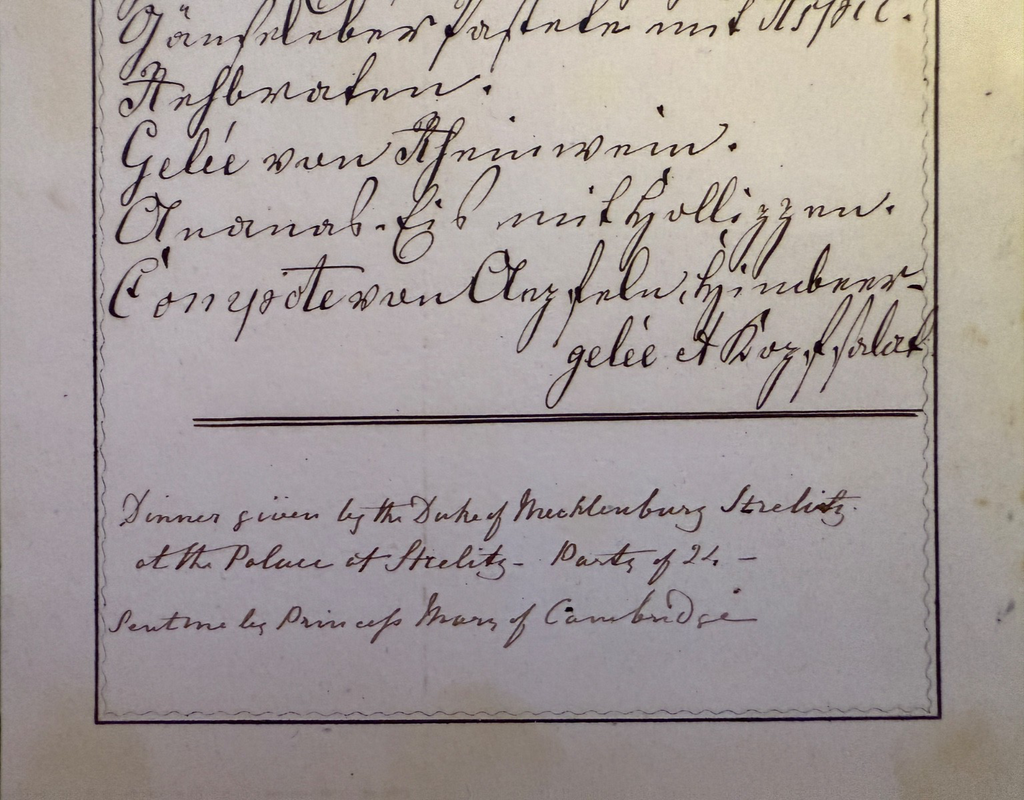 Gänseleberpastete mit Aspic.
Rehbraten.
Gelée von Rheinwein.
Ananas-Eis mit Hollizzen.
Compote von Aepfeln, Himbeer-
gelée et Kopfsalat
Dinner given by the Duke of Mecklenburg Strelitz.
at the Palace at Strelitz - Party of 24 -
Sent me by Princess Mary of Cambridge